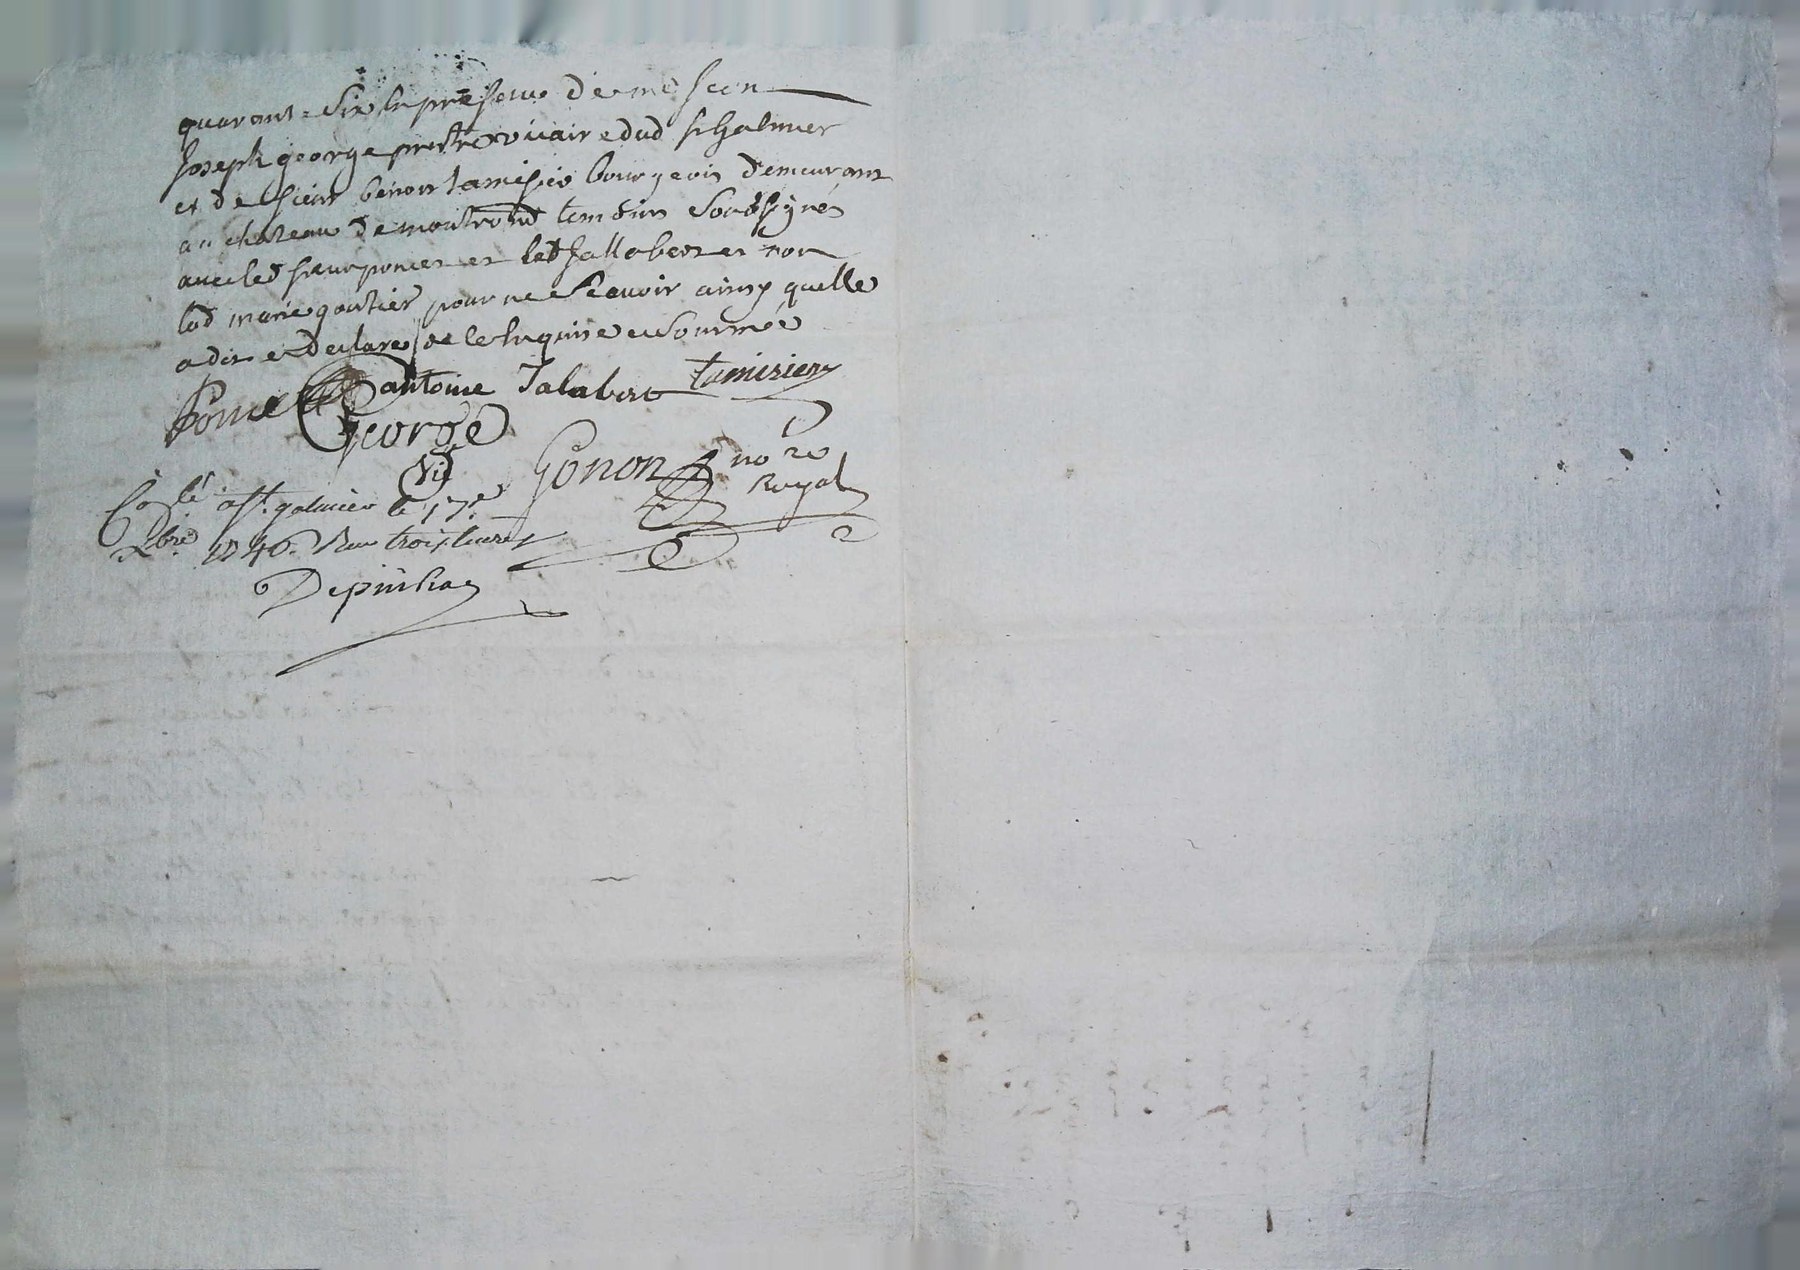 quarante six en presence de me Jean
Joseph george prestre vicaire dud st Galmier
et de sieur benoit tamisier bourgeois demeurant
au chateau de montrond temoins Soussignés
avec led sieur poncet et led Jallabert et non
lad marie gautier pour ne Scavoir ainsy quelle
a dit et declaré de ce Enquise et Sommée
Poncet antoine Jalabert tamisier
George
Vic Gonon nore
Royal
Colé a st. galmier le 17e
Xbre 1746. Reçu trois livres
Depinha